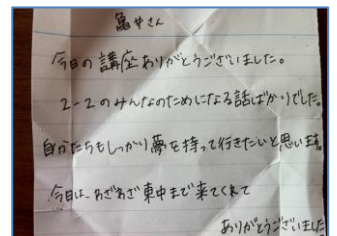 亀井さん
今日の講座ありがとうございました。
2-2のみんなのためになる話ばかりでした。
自分たちもしっかり夢を持って行きたいと思います。
今日は、わざわざ東中まで来てくれて
ありがとうございました